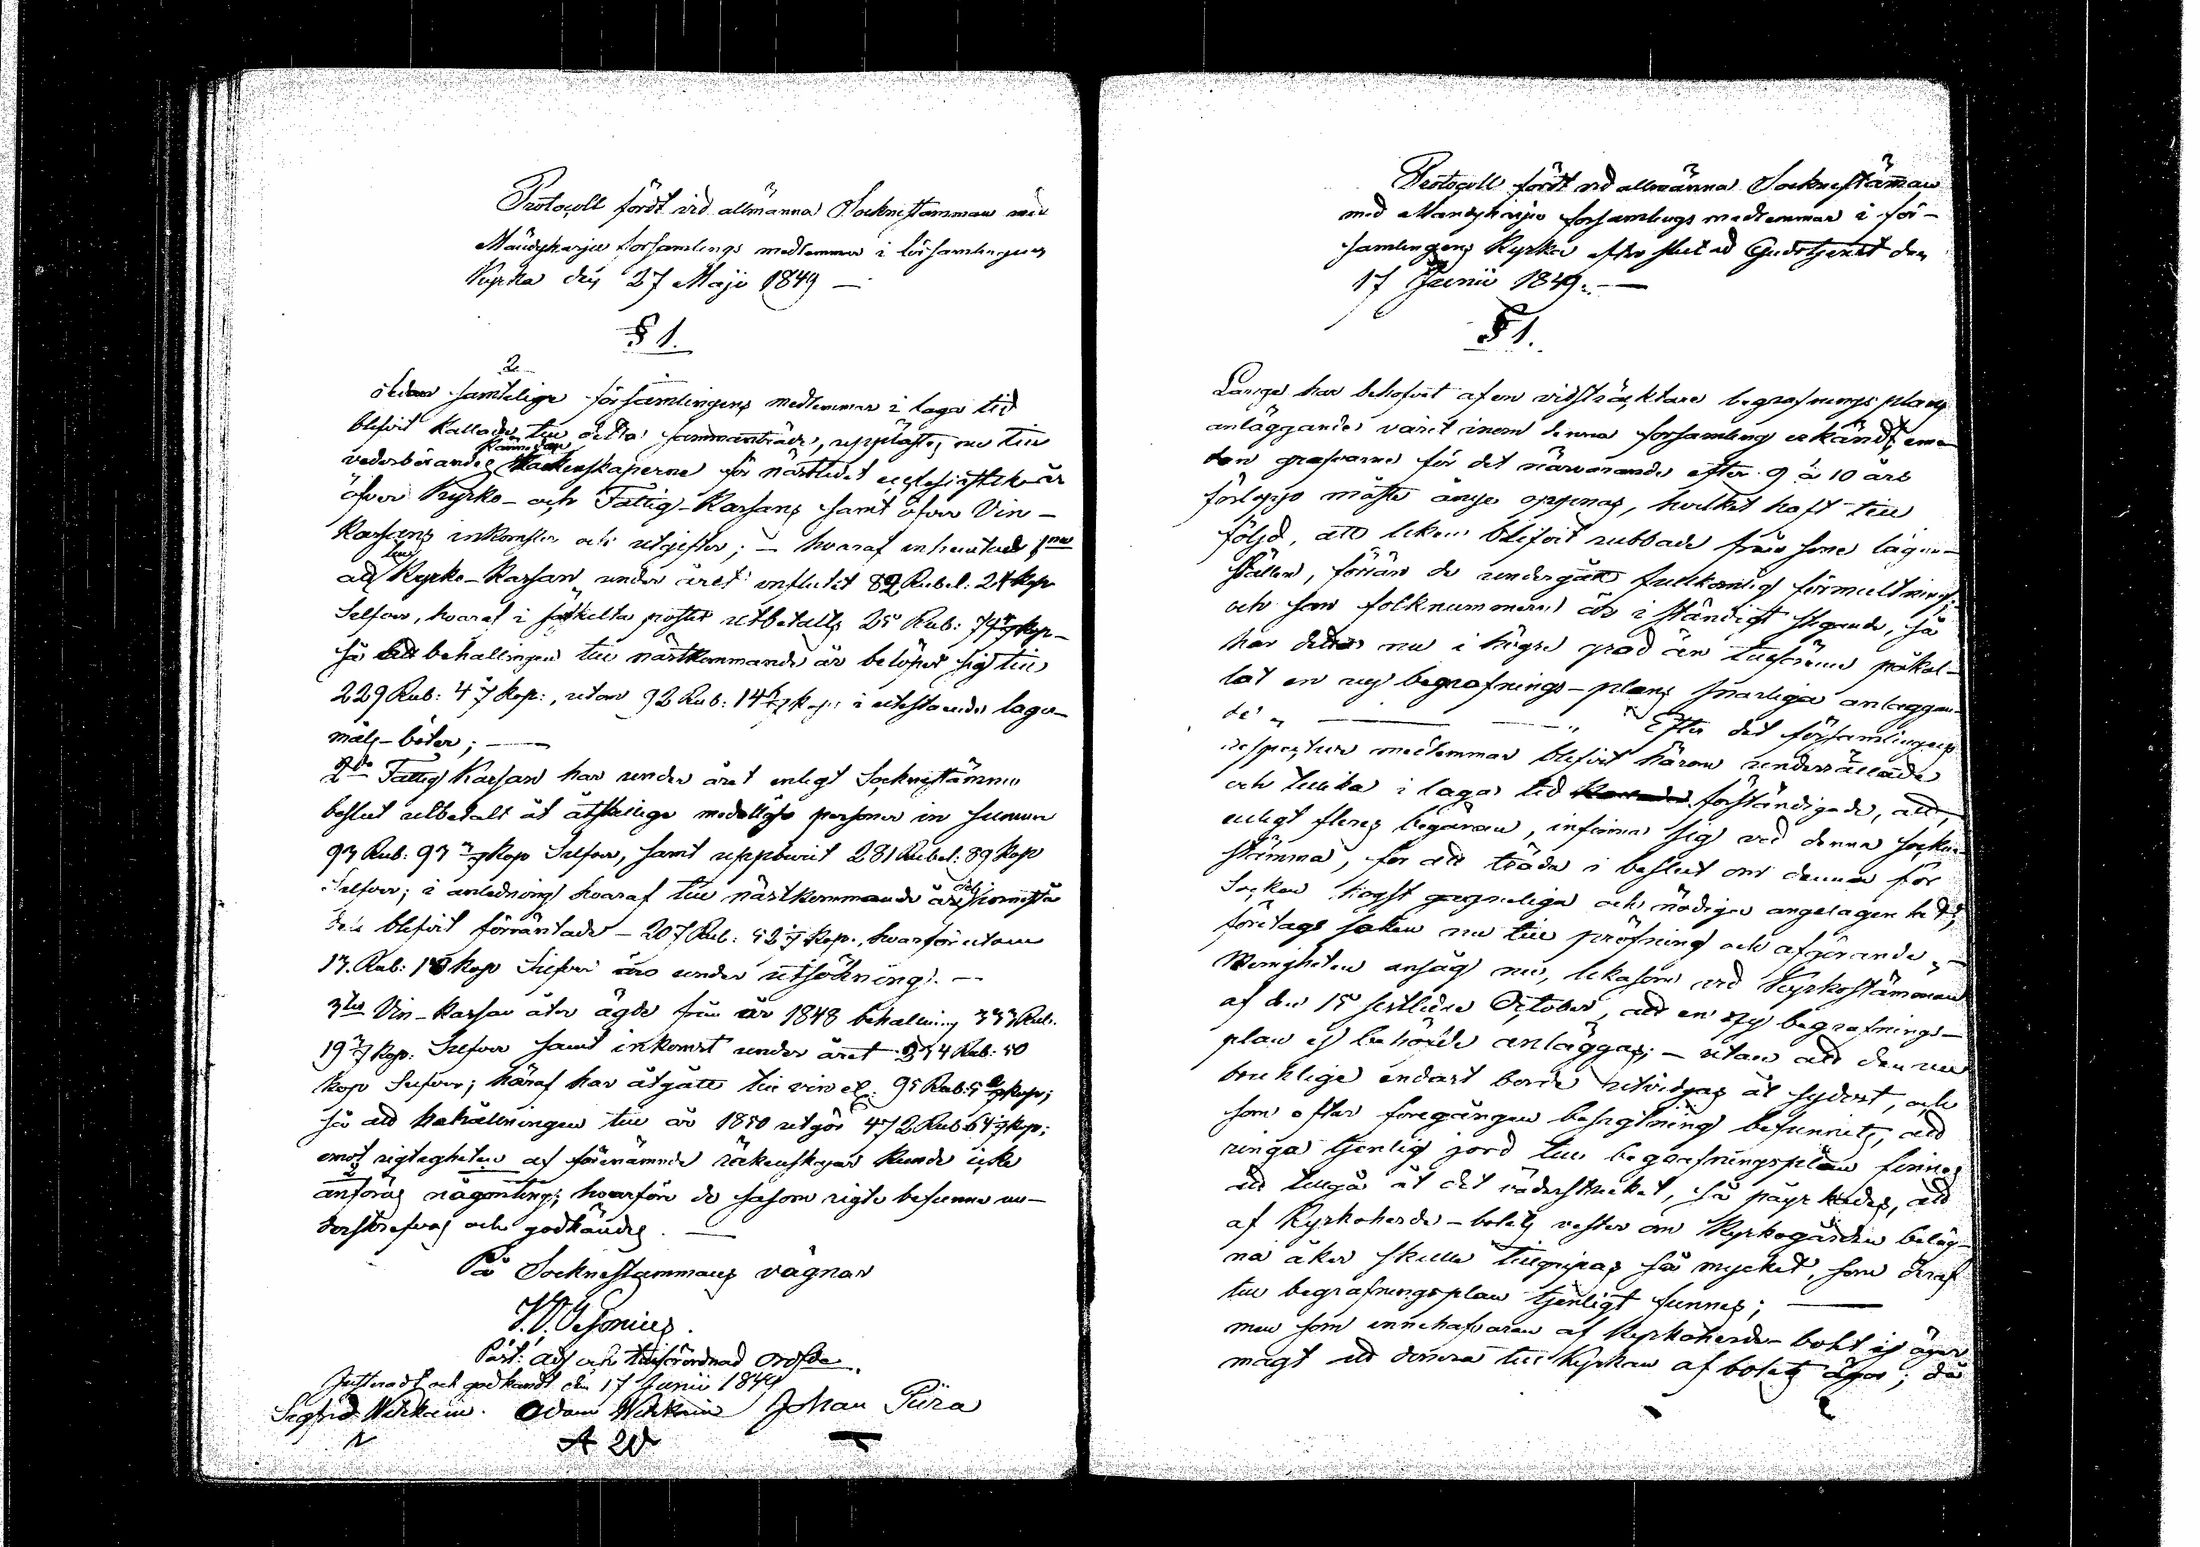 Protocoll fördt vid allmänna Socknestämman med
Mäntyharju församlings medlemmar i församlingens
Kyrka den 27 Maji 1849 —
§ 1.
Sedan samtelige församlingens medlemmar i laga tid
blifvit kallade till detta sammanträde, upplästes nu till
vederbörandes kännedom Räkenskaperne för nästledet ecclesiastik år
öfver Kyrko- och Fattig-Kassans samt öfver Vin-
Kassans inkomster och utgifter; — hvaraf inhemtades 1mo
att till Kyrko-Kassan under året influtit 82 Rubel: 24 Kop
Silfver, hvaraf i särskilta poster utbetalts 25 Rub:
så att behållningen till nästkommande år belöper sig till
229 Rub: 4 Kop:, utom 32 Rub: 14 Kop: i utestående lager-
måls-böter; —
2do Fattig Kassan har under året enligt Socknestämmo
beslut utbetalt åt åtskillige medellösa personer en summa
93 Rub: 93 Kop Silfver, samt uppburit 281 Rubel: 89 Kop
Silfver; i anledning hvaraf till nästkommande år
blifvit förväntade — 207 Rub: 52 Kop., hvarförutom
13. Rub: Kop Silfver äro under utsökning. —
3tio Vin-Kassan åter ägde från år 1848 behållning 333 Rub.
19 Kop: Silfver samt inkomst under året 234 Rub: 50
kop Silfver; häraf har åtgått till vin 95 Rub: 5 Kop;
så att behållningen till år 1850 utgör 472 Rub 64 Kop;
emot rigtigheten af förenämnde räkenskaper kunde icke
anföras någonting; hvarföre de såsom rigte befunne un-
derskrefvos och godkändes. —
På Sockenstämmans vägnar
Past: adj och tillförordnad ordf.
Justeradt och godkändt den 17 Junii 1849
Sigfrid Wihkain. Adam Wihkain Johan Piira
Protocoll fördt vid allmänna Sockenstämman
med Mäntyharju församlings medlemmar i för-
samlingens Kyrka efter slutad Gudstjenst den
17 Junii 1849. —
§ 1.
Länge har behofvet af en vidsträcktare begrafnings plans
anläggande varit inom denna församling erkändt, eme-
dan grafvarne för det närvarande efter 9 à 10 års
förlopp måste änyo öppnas, hvilket haft till
följd, att liken blifvit rubbade från sine läger-
ställen, förrän de undergått fullkomlig förmultning;
och som folknummern är i ständigt stigande, så
har detta nu i högre grad än tillförene påkal-
lat en ny begrafnings-plans snarliga anläggan-
de „ — — „ Efter det församlingens
respective medlemmar blifvit härom underrättade
och tillika i laga tid förständigade, att,
enligt fleres begäran, infinna sig vid denna socken-
stämma, för att träda i beslut om denna för
Socken högst gagneliga och nödiga angelägenhet;
företogs saken nu till pröfning och afgörande „ —
Menigheten ansåg nu, likasom vid Kyrkostämman
af den 15 sistledne October, att en ny begrafnings-
plan ej behöfde anläggas; — utan att den nu
brukliga endast borde utvidgas åt syderst, och
som efter föregången besigtning befunnits, att
ringa tjenlig jord till begrafningsplan finnes
att tillgå åt det väderstrecket, så påyrkades, att
af Kyrkoherde-bolets vester om Kyrkogården beläg-
na åker skulle tillgripas så mycket, som deraf
till begrafningsplan tjenligt funnes; —
men som innehafvaren af Kyrkoherde-bolet ej äger
magt att donera till Kyrkan af bolets ägor; då